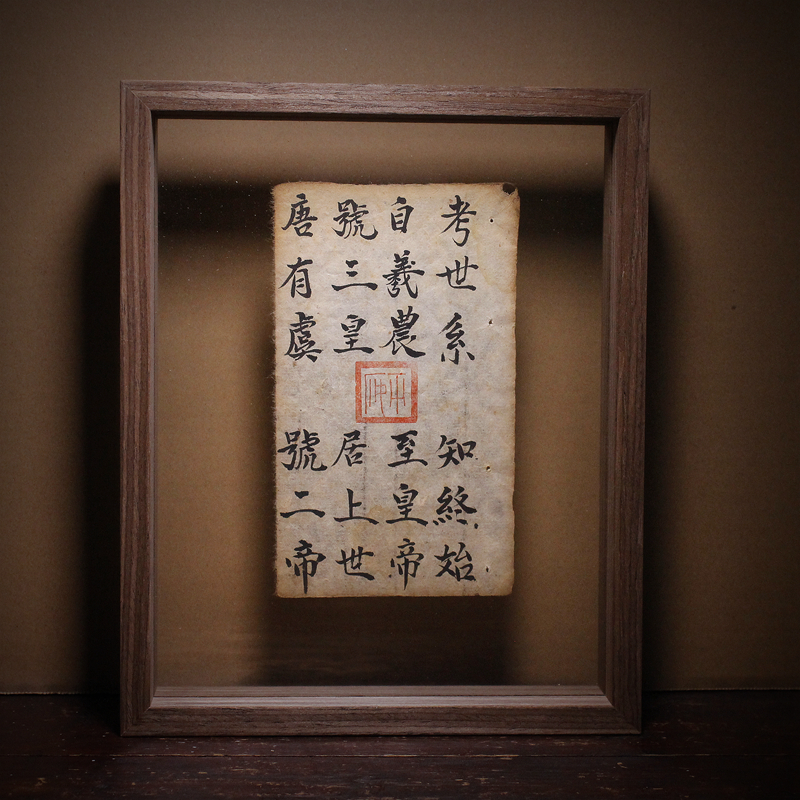 考世系 知終始
自羲農 至皇帝
號三皇 居上世
唐有虞 號二帝